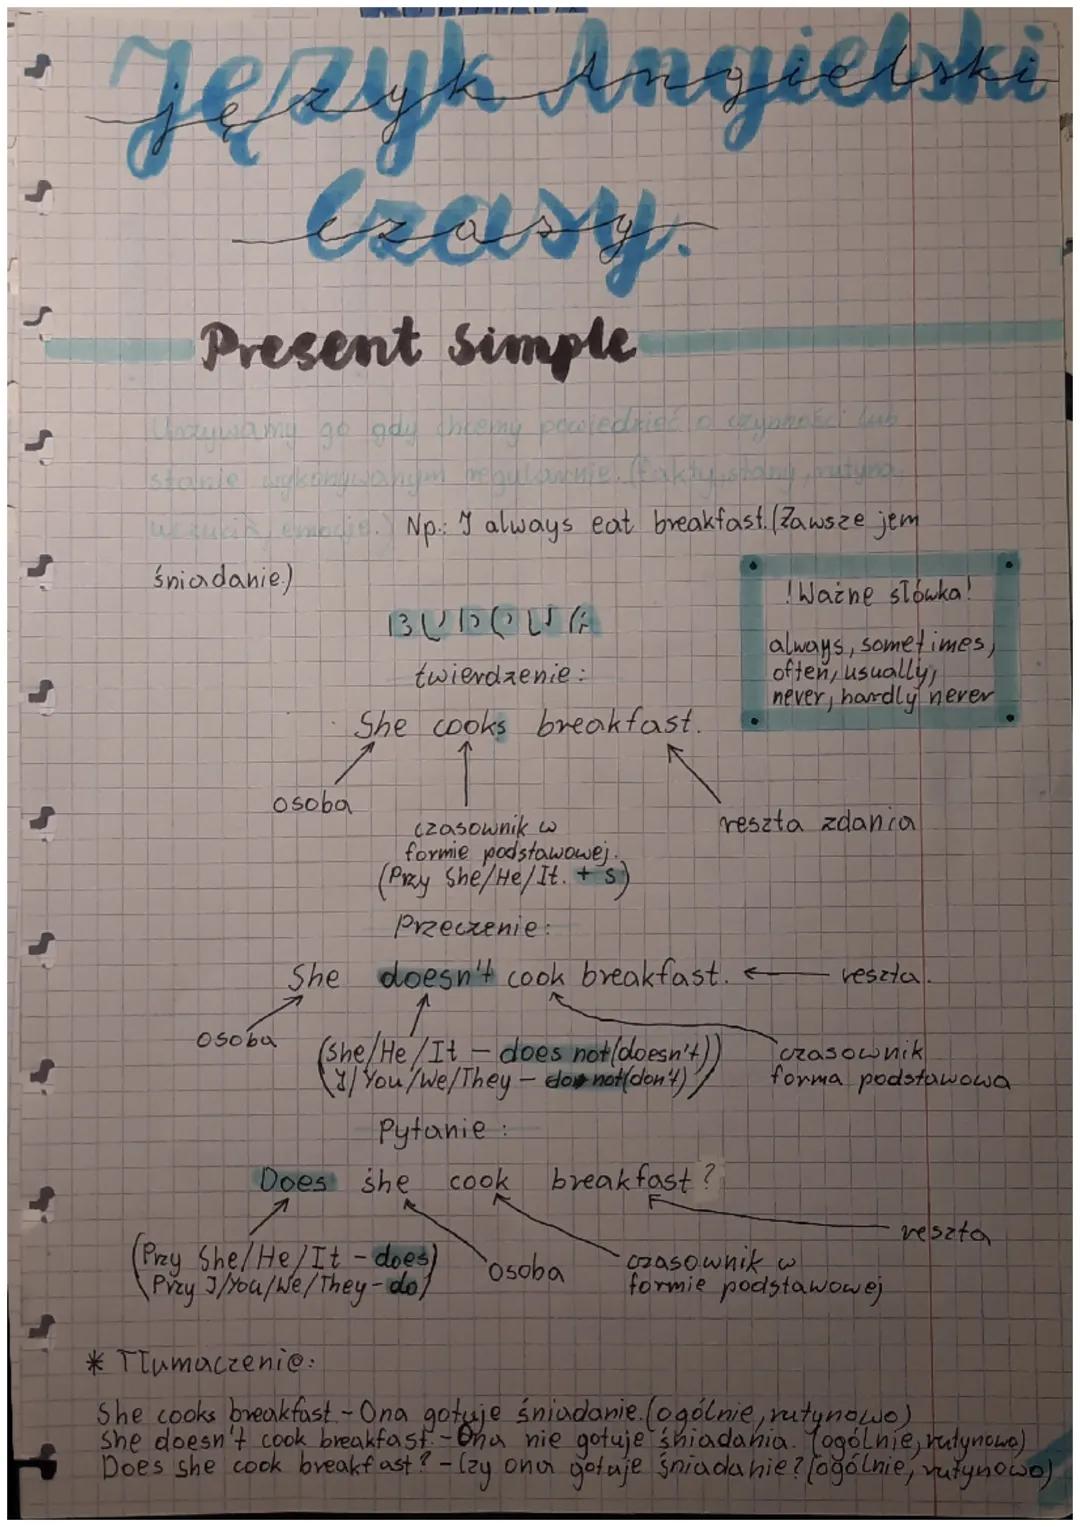 Język Angielski
Czasy.
Present Simple
Używamy go gdy chcemy powiedzieć o czynności lub
stanie wykonywanym regularnie. (fakty, stany, rutyna,
uczucia, emocje.) Np.: I always eat breakfast. (Zawsze jem
śniadanie.)
!Ważne słówka!
always, sometimes,
often, usually,
never, hardly never
twierdzenie:
She cooks breakfast.
osoba
czasownik w
formie podstawowej.
(Przy She/He/It. + s)
reszta zdania
Przeczenie:
She doesn't cook breakfast. reszta.
osoba
(She/He/It – does not(doesn't))
(I/You/We/They – do not(don't))
czasownik
forma podstawowa
Pytanie:
Does she cook breakfast?
reszta
(Przy She/He/It – does)
(Przy I/You/We/They – do)
osoba
czasownik w
formie podstawowej
* Tłumaczenie:
She cooks breakfast. – Ona gotuje śniadanie. (ogólnie, rutynowo)
She doesn't cook breakfast. – Ona nie gotuje śniadania. (ogólnie, rutynowo)
Does she cook breakfast? – Czy ona gotuje śniadanie? (ogólnie, rutynowo)